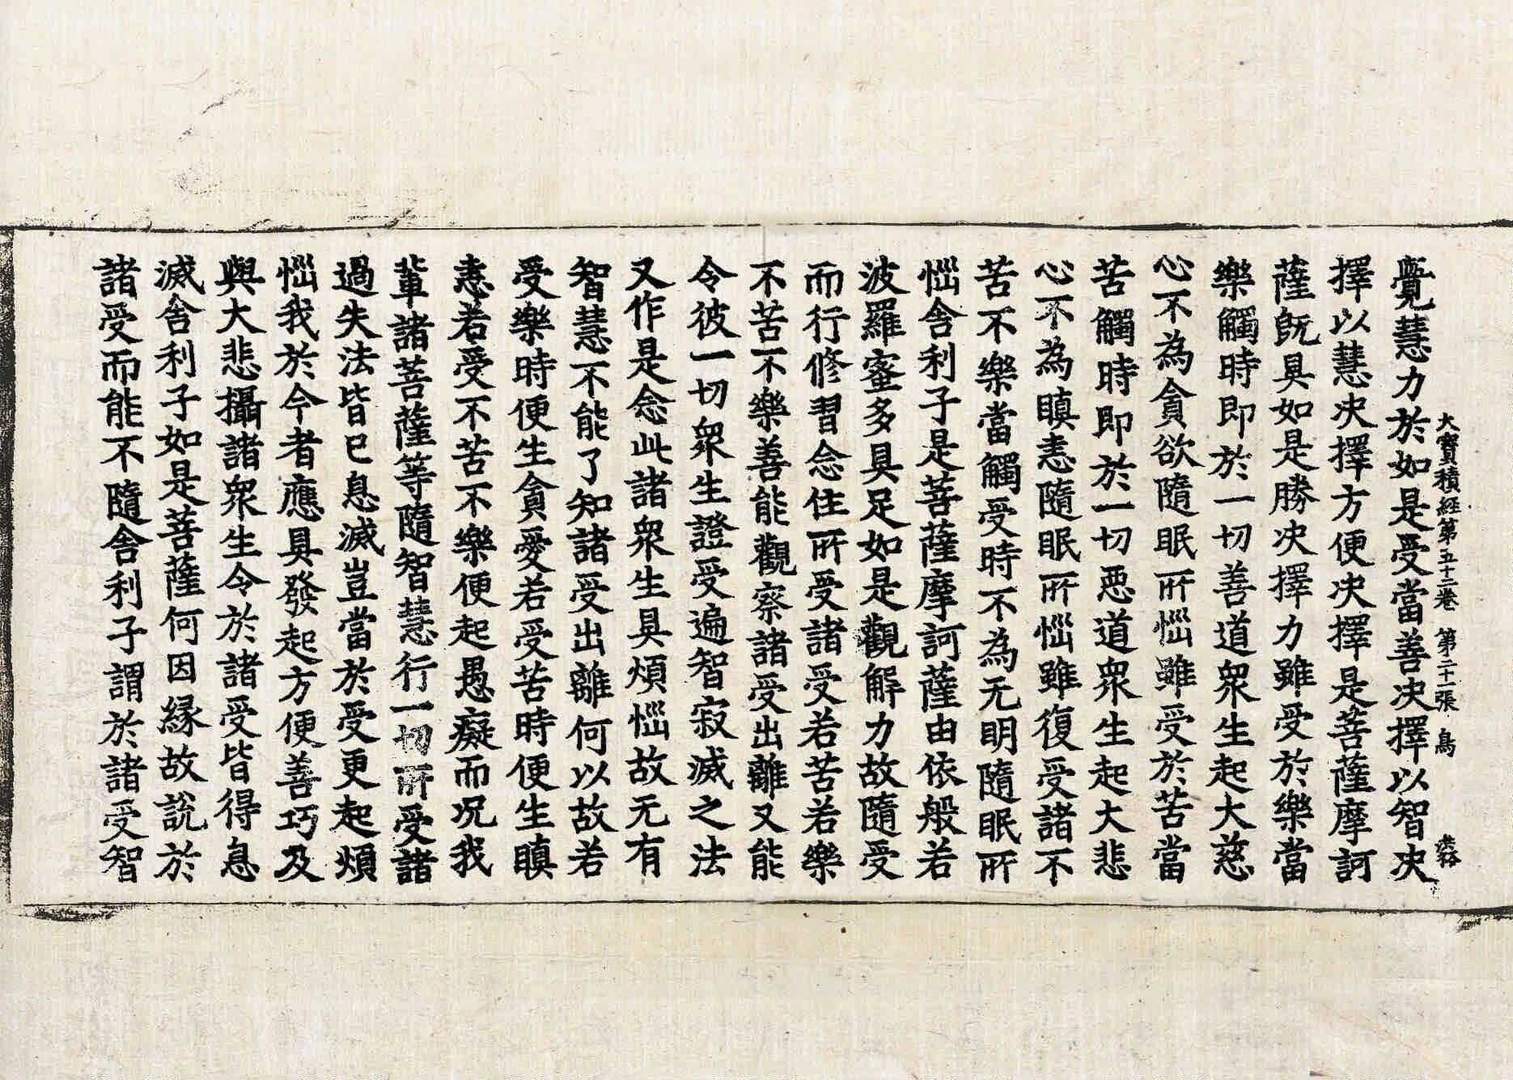 大寶積經第五十二卷 第二十一張 鳥
覺慧力於如是受當善决擇以智决
擇以慧决擇方便决擇是菩薩摩訶
薩旣具如是勝决擇力雖受於樂當
樂觸時即於一切善道衆生起大慈
心不為貪欲隨眠所惱雖受於苦當
苦觸時即於一切惡道衆生起大悲
心不為瞋恚隨眠所惱雖復受諸不
苦不樂當觸受時不為无明隨眠所
惱舍利子是菩薩摩訶薩由依般若
波羅蜜多具足如是觀解力故隨受
而行修習念住所受諸受若苦若樂
不苦不樂善能觀察諸受出離又能
令彼一切衆生證受遍智寂滅之法
又作是念此諸衆生具煩惱故无有
智慧不能了知諸受出離何以故若
受樂時便生貪愛若受苦時便生瞋
恚若受不苦不樂便起愚癡而况我
輩諸菩薩等隨智慧行一切所受諸
過失法皆已息滅豈當於受更起煩
惱我於今者應具發起方便善巧及
與大悲攝諸衆生令於諸受皆得息
滅舍利子如是菩薩何因縁故說於
諸受而能不隨舍利子謂於諸受智